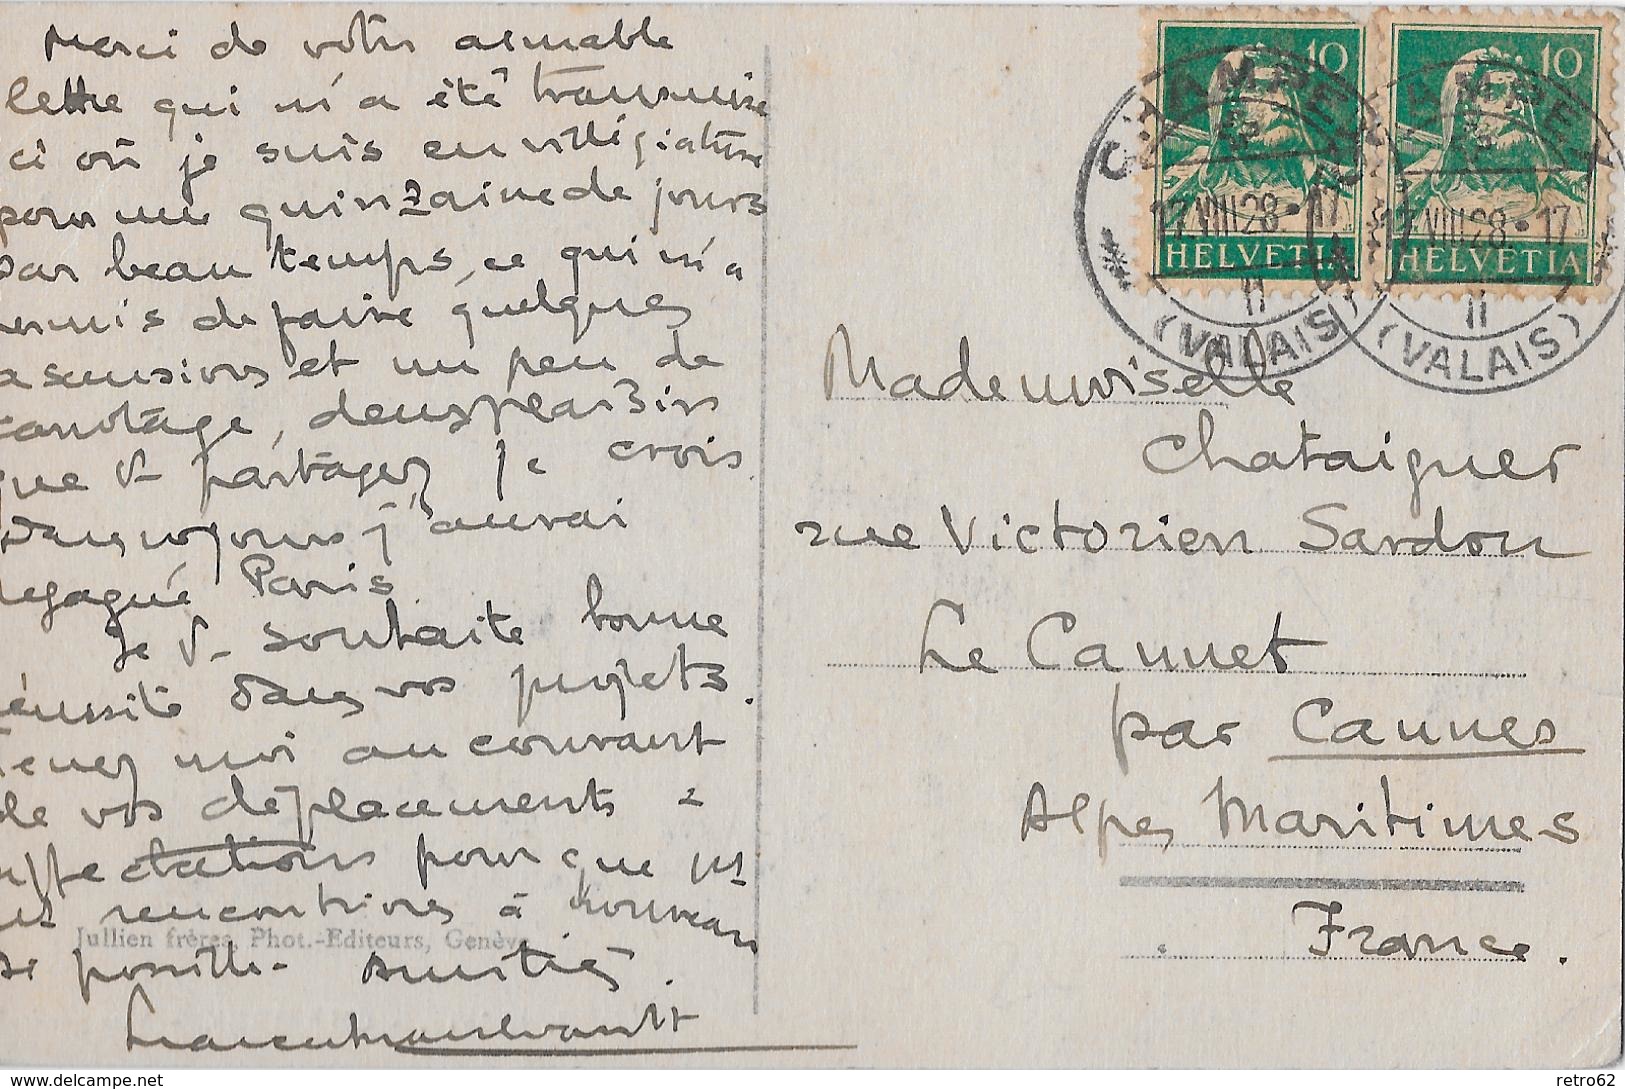 Merci de votre aimable
lettre qui m'a été transmise
ici où je suis en villégiature
pour une quinzaine de jours
par beau temps, ce qui m'a
permis de faire quelques
ascensions et un peu de
canotage, deux plaisirs
que v- partagez je crois
j'aurai
regagné Paris
Je v- souhaite bonne
réussite dans vos projets.
Tenez moi au courant
de vos déplacements &
affectations pour que ns
ns rencontrions à nouveau
si possible - Amitiés.
Jullien frères, Phot.-Editeurs, Genève
10 10
HELVETIA HELVETIA
CHAMPEX
17.VIII.28•17
II
(VALAIS)
CHAMPEX
17.VIII.28•17
II
(VALAIS)
Mademoiselle
Chataigner
rue Victorien Sardou
Le Cannet
par Cannes
Alpes Maritimes
France.
retro62